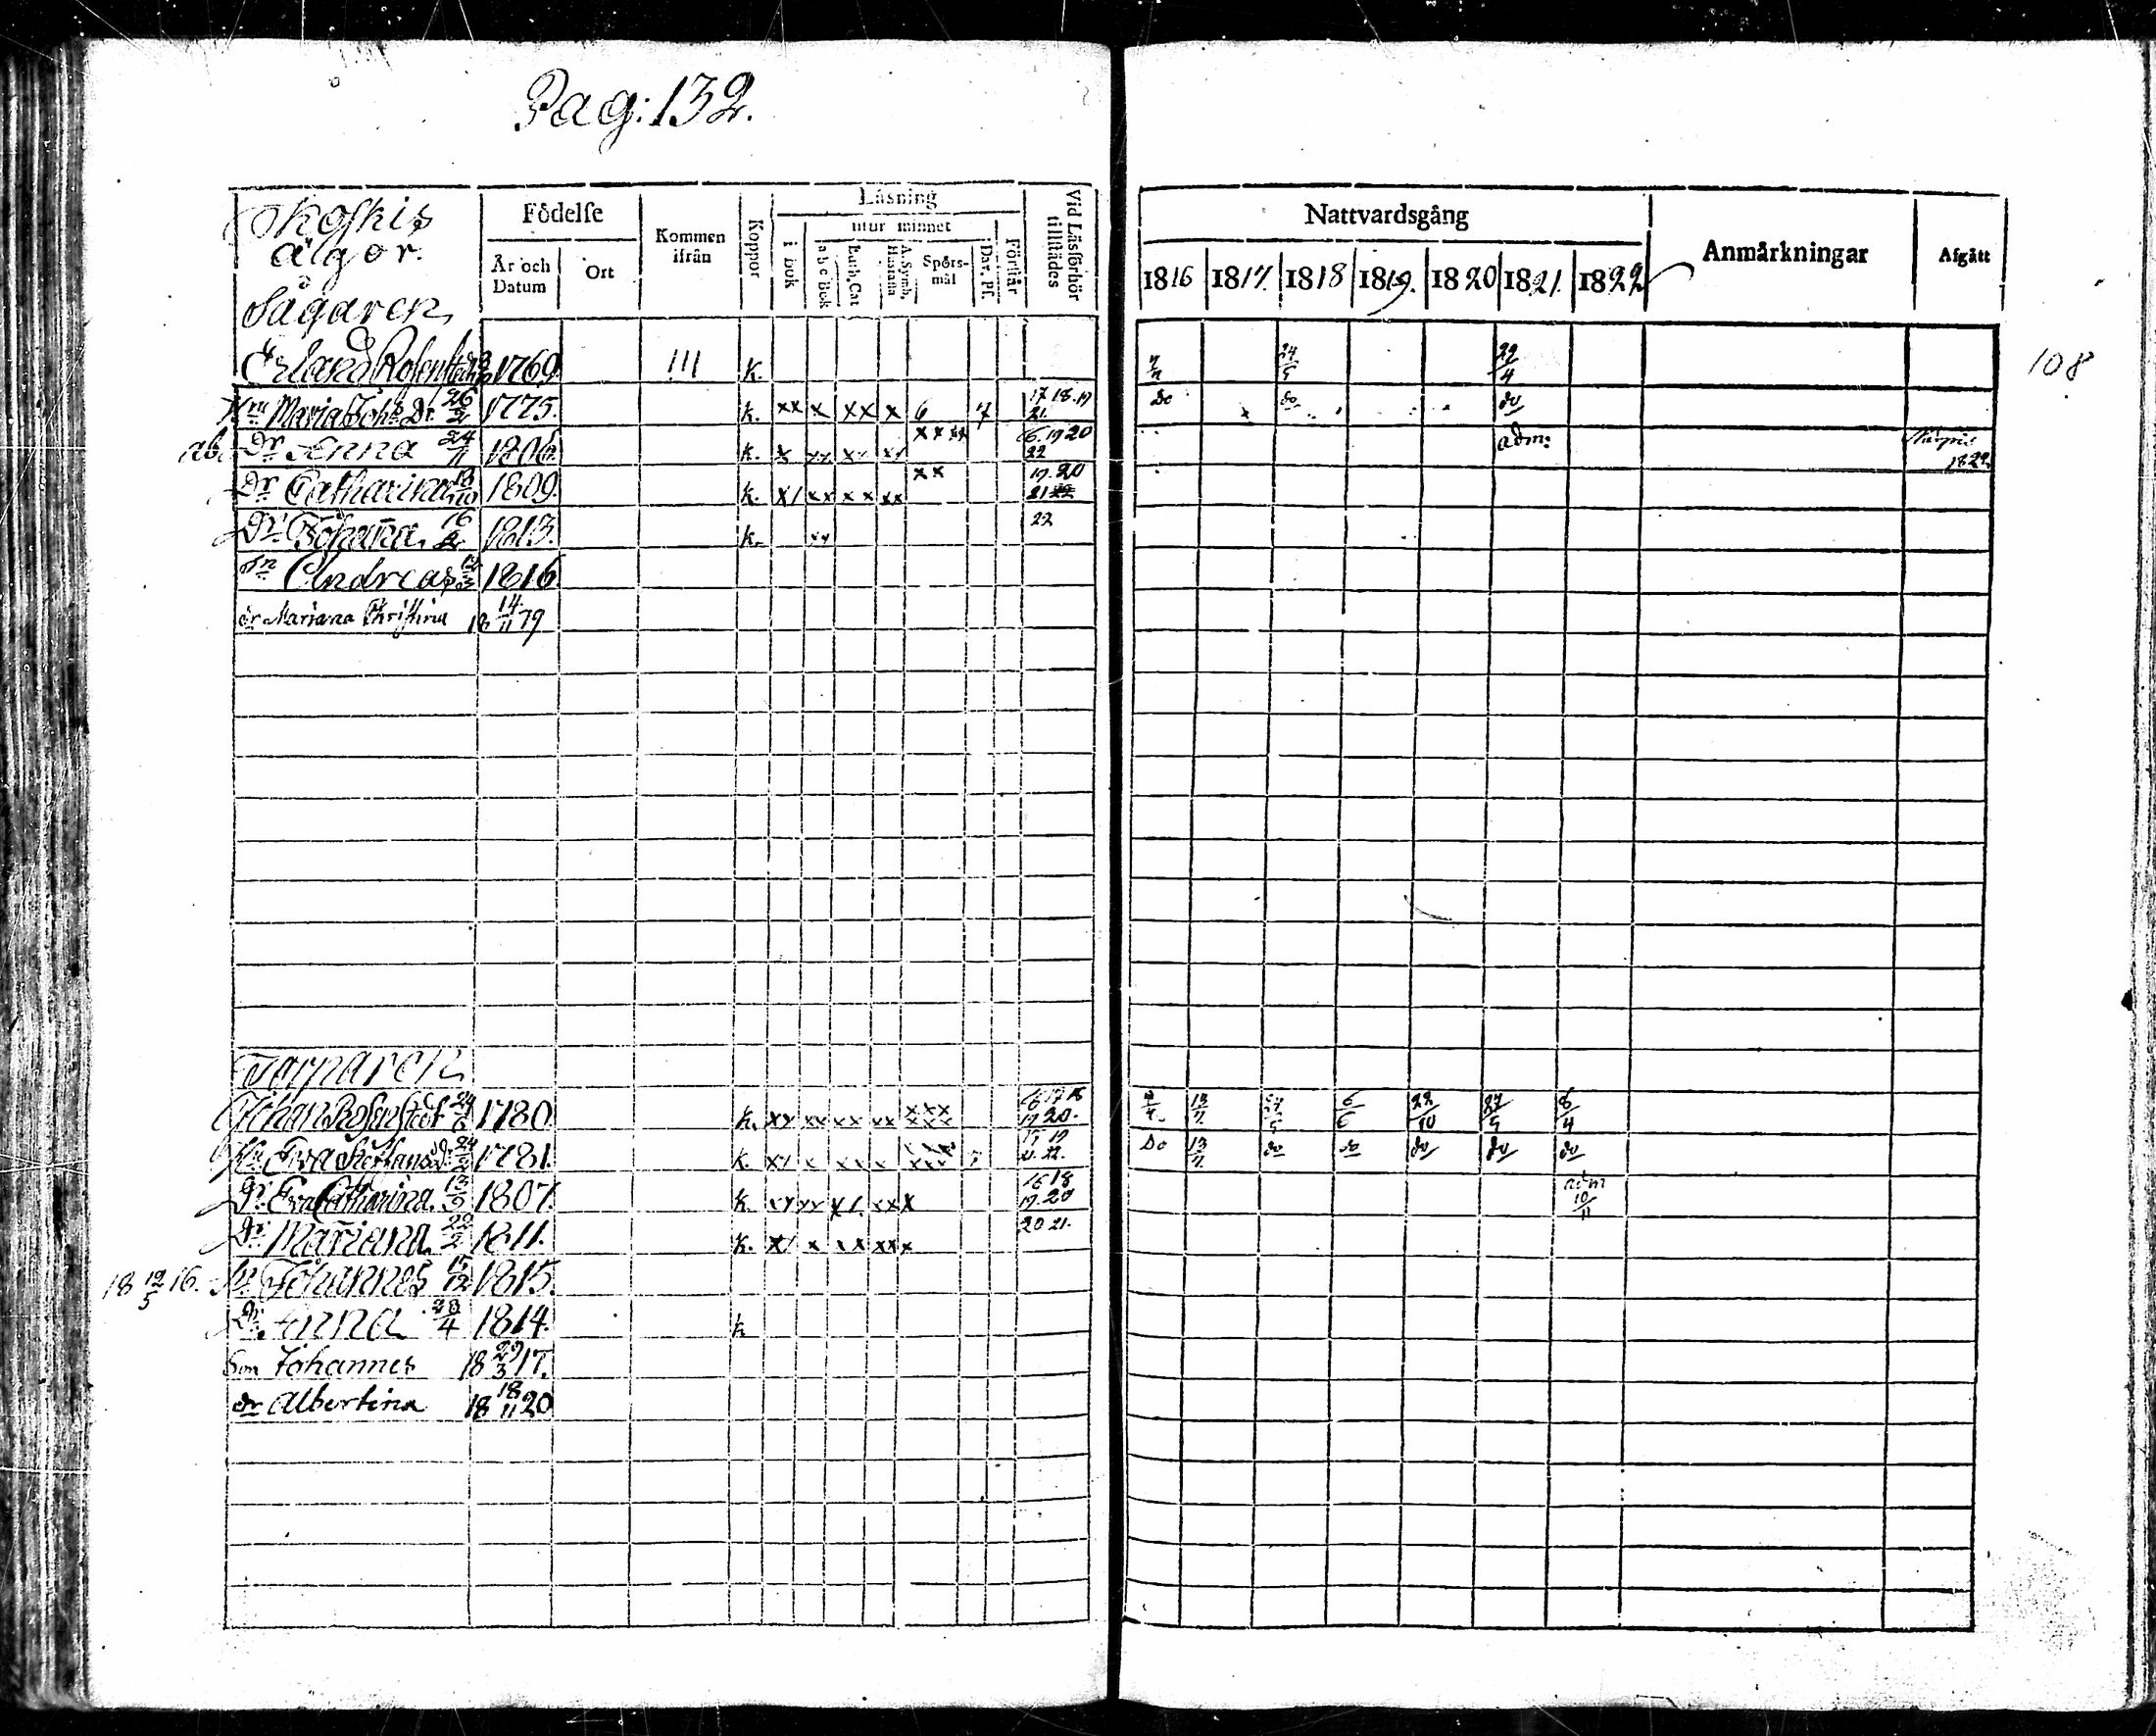 Pag: 132.
Koskis
ålgor.
Sågaren
Födelse
År och Datum
Ort
Kommen ifrån
Koppor
Läsning
i bok
utur minnet
a b c Bok
Luth. Cat
A. Symb. Hustafla
Spörsmål
Dav. Ps.
Förstår
Vid Läsförhör tillstädes
Nattvardsgång
1816 1817. 1818 1819. 1820 1821. 1822
Anmärkningar
Afgått
108
Erland 1769 111 K. 24/5 22/4
Maria Joh: Dr. 26/2 1775. K. xx x xx x 6 7 17 18. 19 21. Do do do
Dr Anna 24/11 1806. K. x xx xx xx xxxx 16. 19 20 22 adm: 1822.
Dr Catharina 1809. K. x/ xx xx xx xx 19. 20 21 22
Dr Johana 1813. K. xx 22
Sn Andreas 1816
dr Mariana Christina 18 14/11 19
Torparen
Johan 1780 K. xx xx xx xx xxx xxx 16 17 18 19 20. 13/7 6/6 22/10 27/5 6/4
Eva Steffans Dr 24/2 1781. K. x/ x xxx x Do 13/7 do do do do do
Dr Eva Catharina 13/9 1807. K. xx xx x/. xxx 16 18 19. 20 adm 10/11
Dr Mariana 22/2 1811. K. x/ x xx xxx 20 21.
18 12/5 16. Sn Johannes 15/12 1815.
Dr Anna 28/4 1814. K
Son Johannes 18 29/3 17.
dr Albertina 18 18/11 20